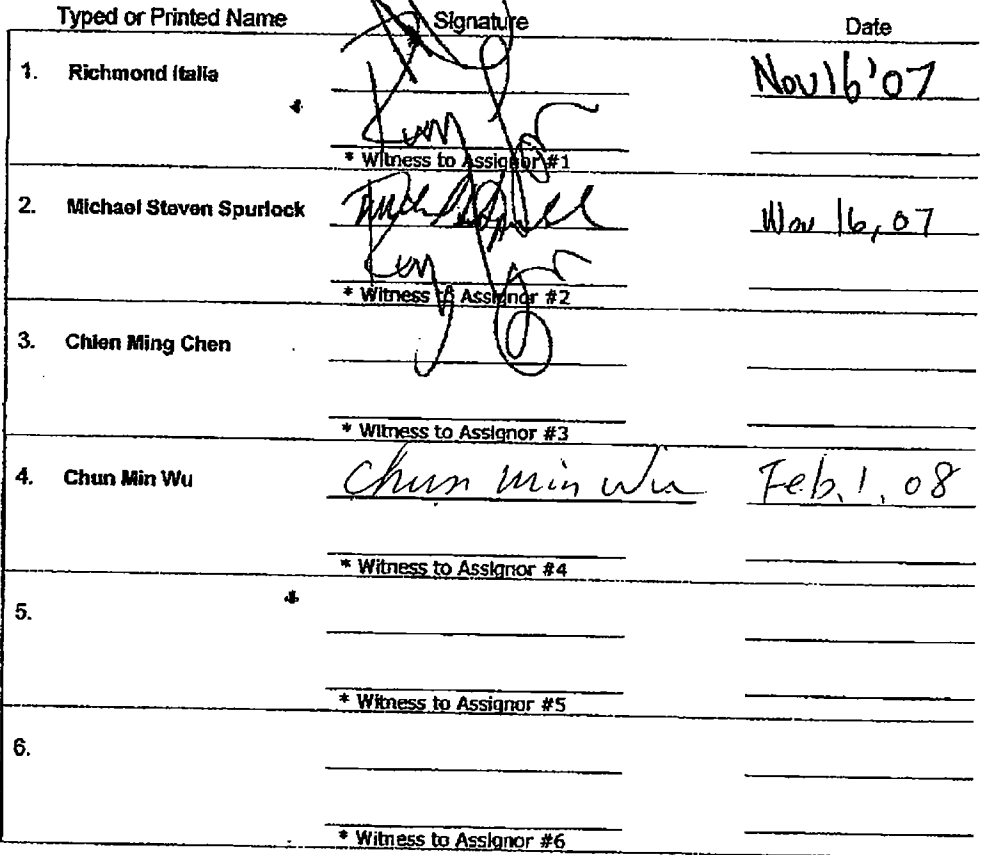 Typed or Printed Name Signature Date
1. Richmond Italia Nov 16 '07
* Witness to Assignor #1
2. Michael Steven Spurlock Nov 16, 07
* Witness to Assignor #2
3. Chien Ming Chen
* Witness to Assignor #3
4. Chun Min Wu Chun Min Wu Feb. 1, 08
* Witness to Assignor #4
5.
* Witness to Assignor #5
6.
* Witness to Assignor #6